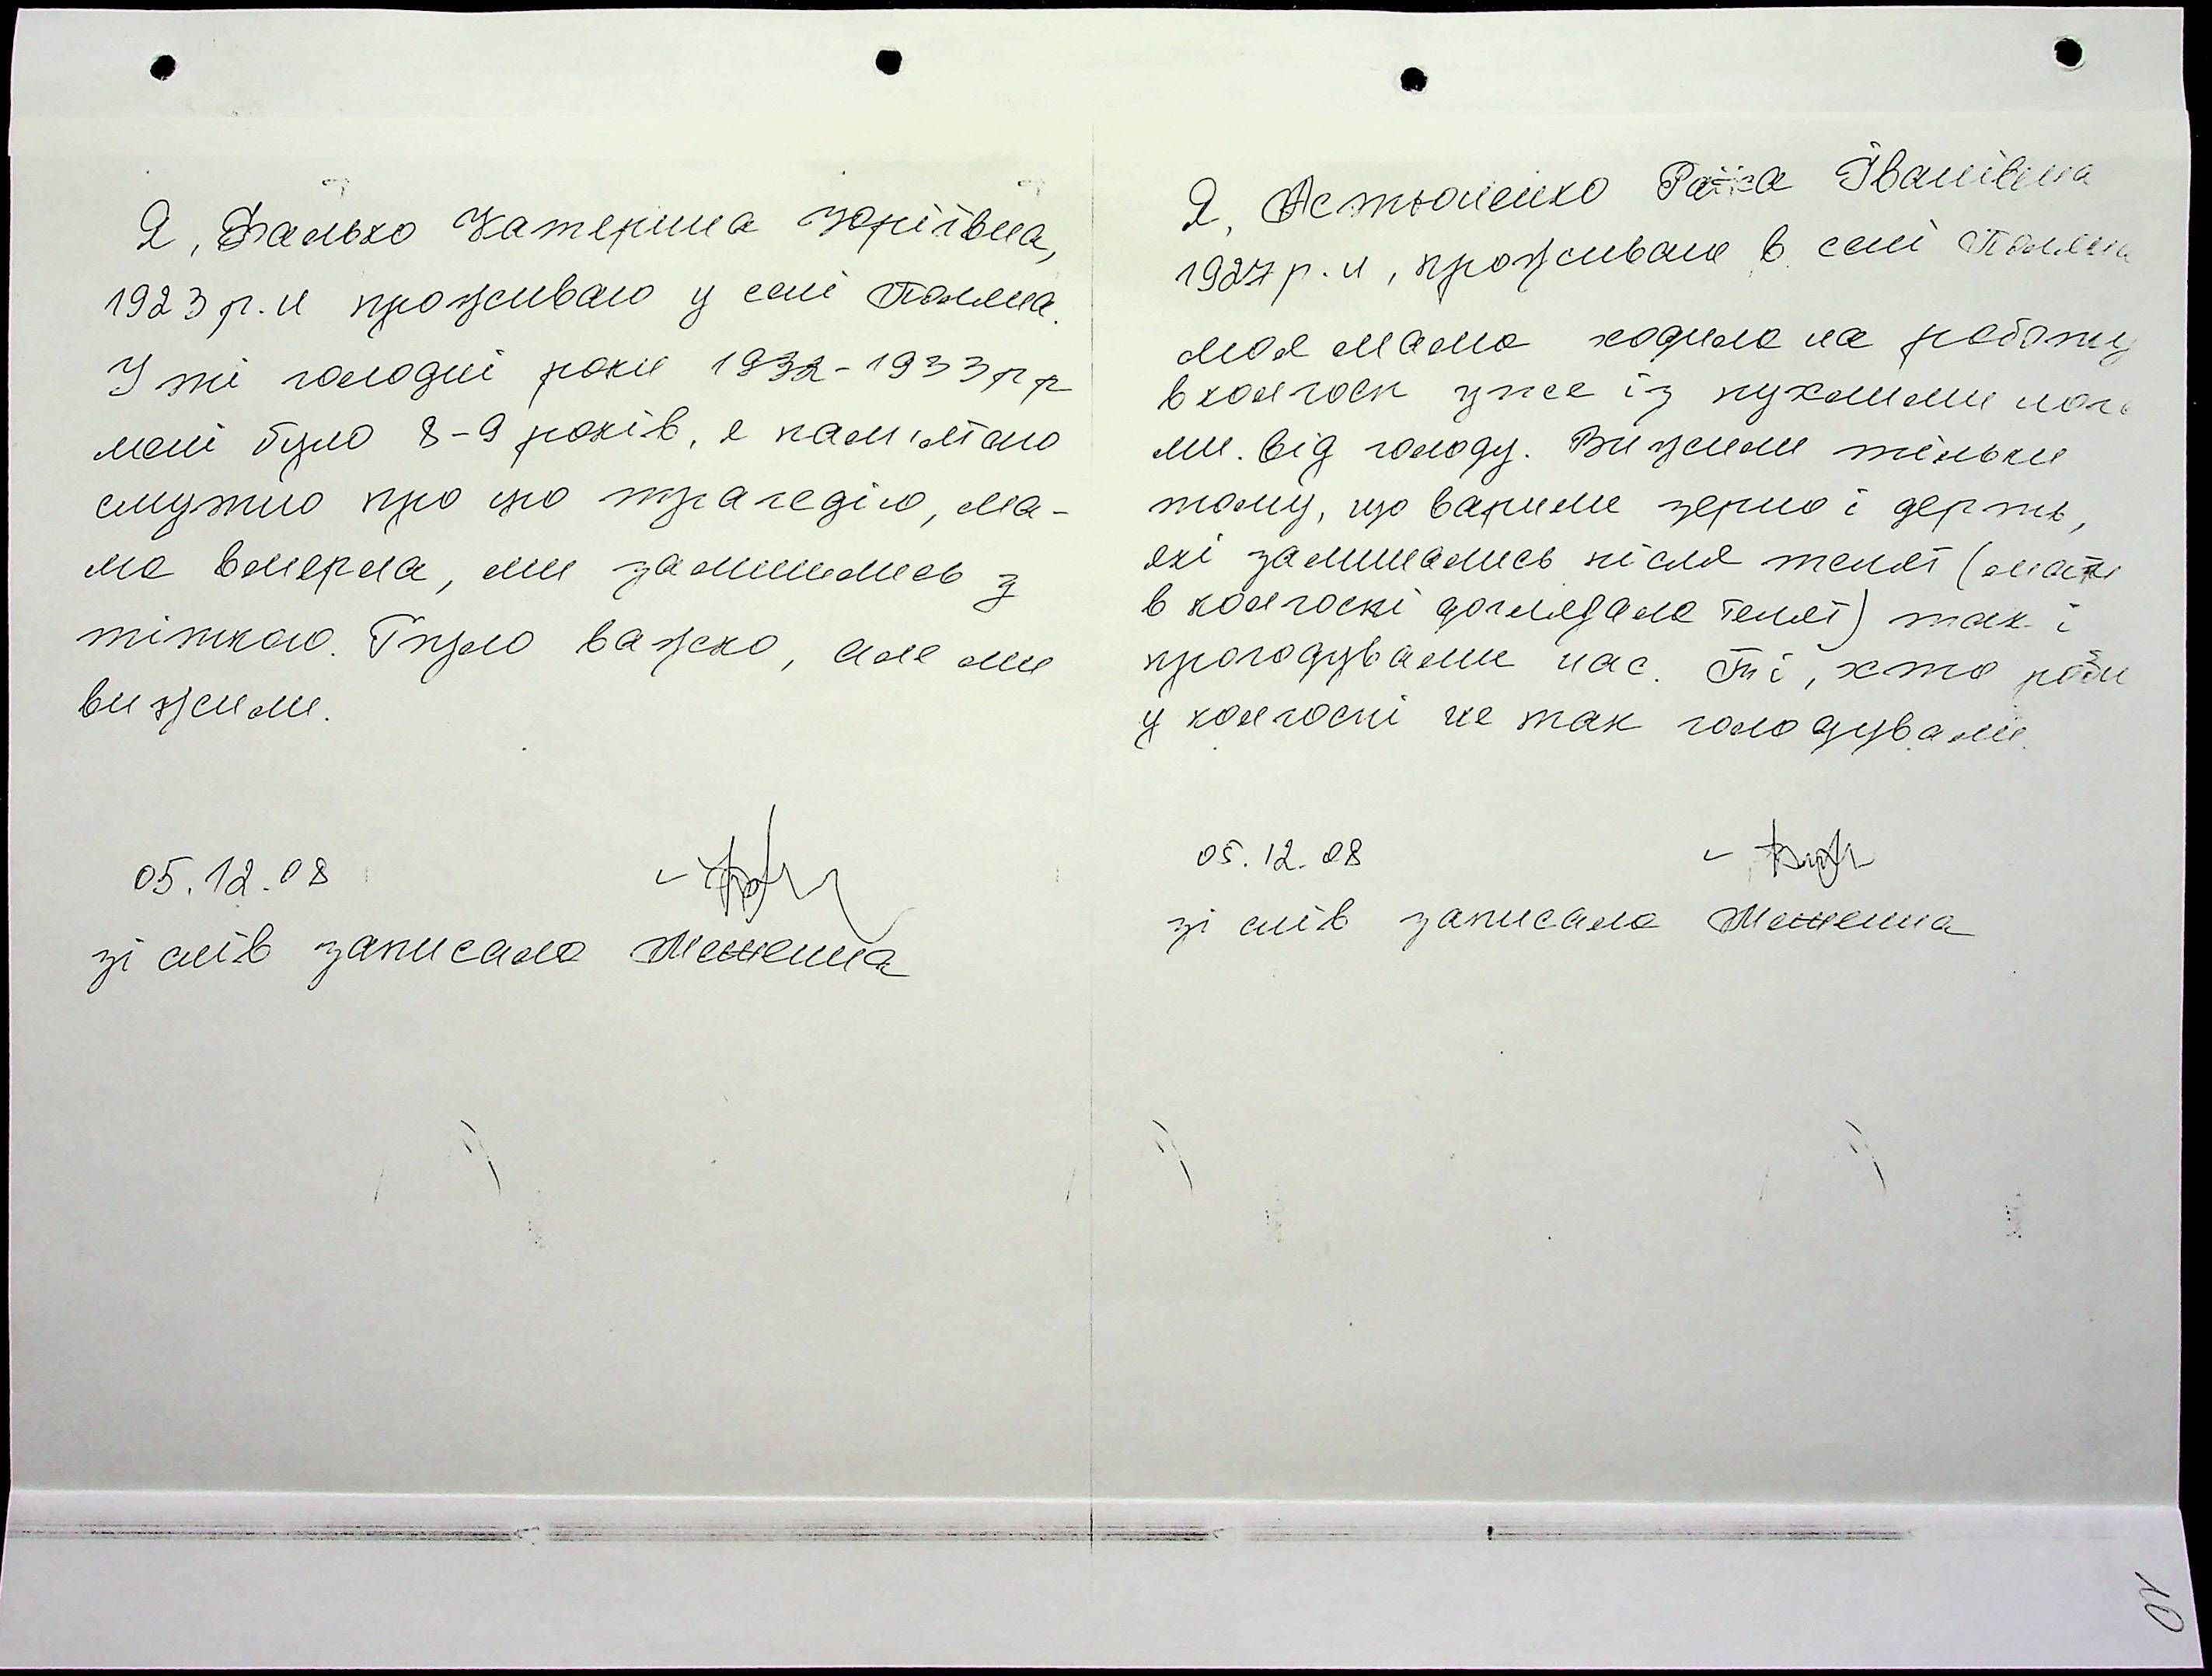 Я, Фалько Катерина Юріївна,
1923 р.н проживаю у селі Поляна.
У ті голодні роки 1932-1933 рр
мені було 8-9 років, я пам'ятаю
смутно про цю трагедію, ма-
ма вмерла, ми залишились з
тіткою. Було важко, але ми
вижили.
05.12.08
зі слів записала
Я, Астюненко Раїса Іванівна
1927 р.н, проживаю в селі Поляна
моя мама ходила на роботу
в колгосп уже із пухлими нога
ми від голоду. Вижили тільки
тому, що варили зерно і дерть,
які залишались після телят (мати
в колгоспі доглядала телят) так і
прогодували нас. Ті, хто роби
у колгоспі не так голодували.
05.12.08
зі слів записала
10